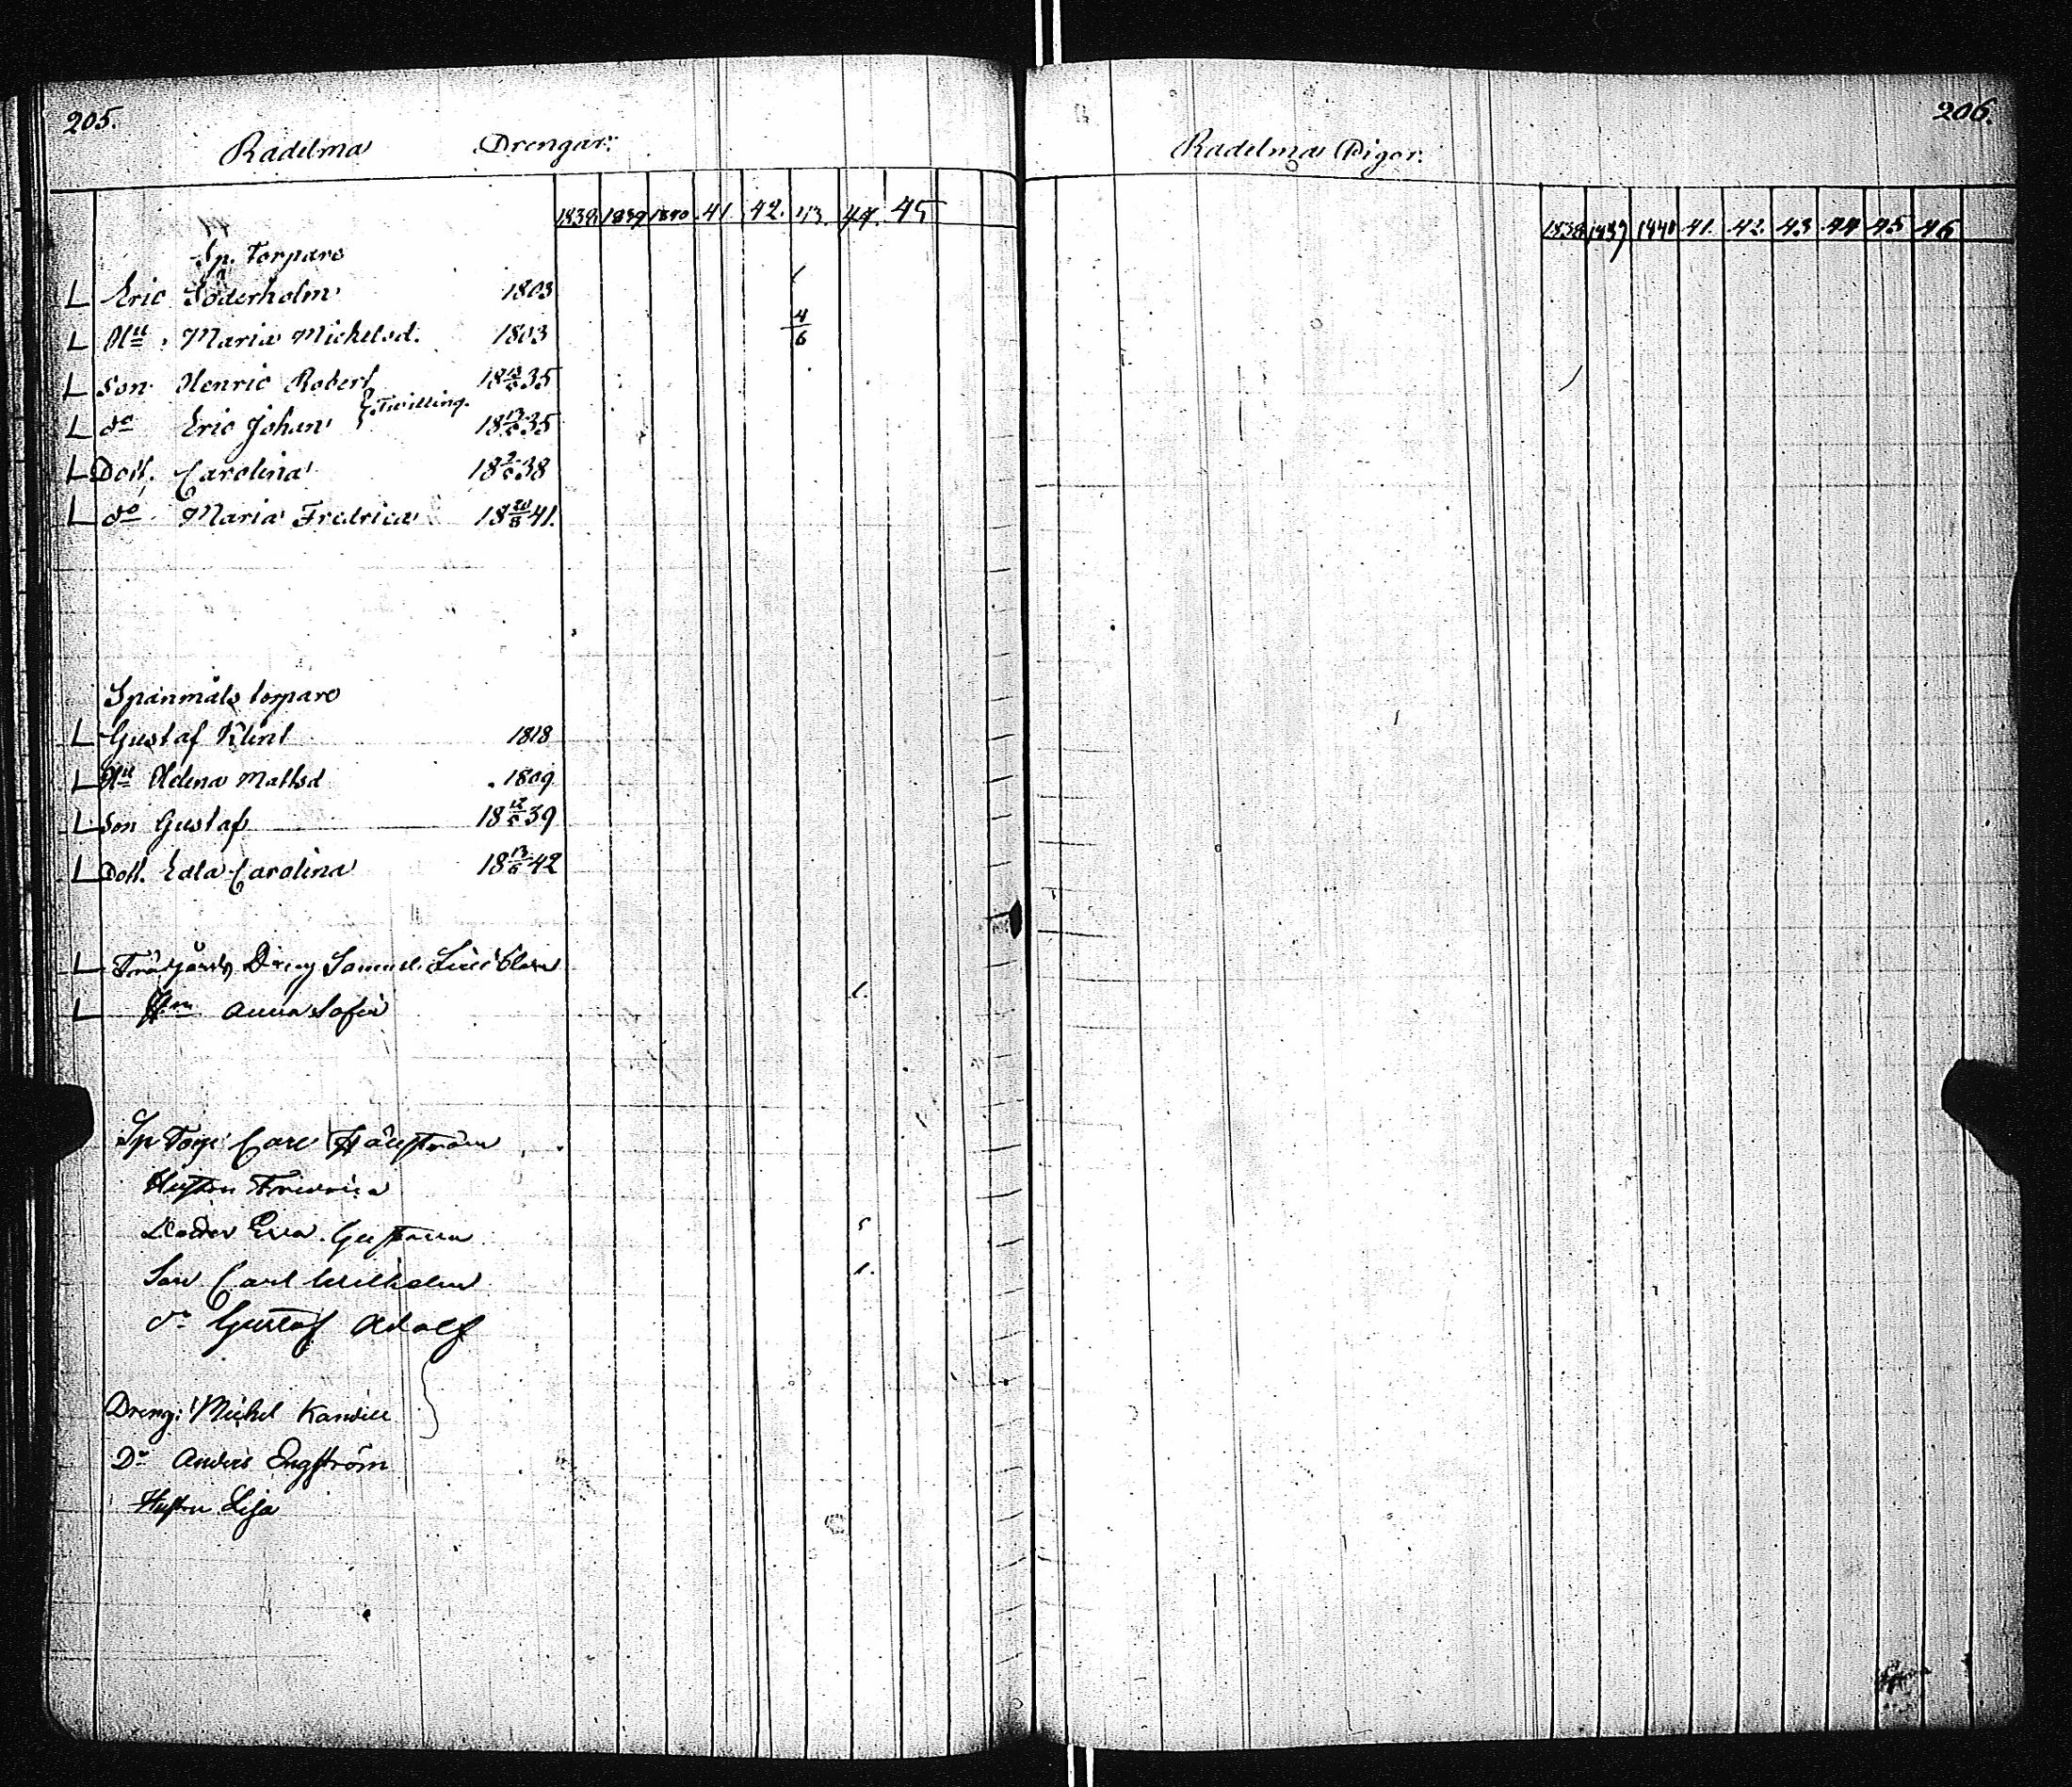 205.
Radilma Drengar.
1838. 1839 1840 41. 42. 43. 44. 45
Sp. Torpare
L Eric Söderholm 1803
L Hu Maria Mickelsd. 1803 4/6
L Son Henric Robert 18 35
Tvilling.
L do Eric Johan 18 35
L Dott. Carolina 18 38
L do Maria Fredrica 18 20/8 41.
Spanmåls torpare
L Gustaf Klint 1818
L Hu Helena Mattsd 1809
L Son Gustaf 18 39
L Dott. Edla Carolina 18 42
L Trägårds Dreng Samuel
L Anna Sofia
Sp Torp Carl
Hustru Fredrica
Eva Gustava
Son Carl Wilhelm
do Gustaf Adolf
Dreng: Michel
Do Anders Engström
Hustru Lisa
206.
Radilma Pigor.
1838 1839 1840 41. 42. 43 44 45 46